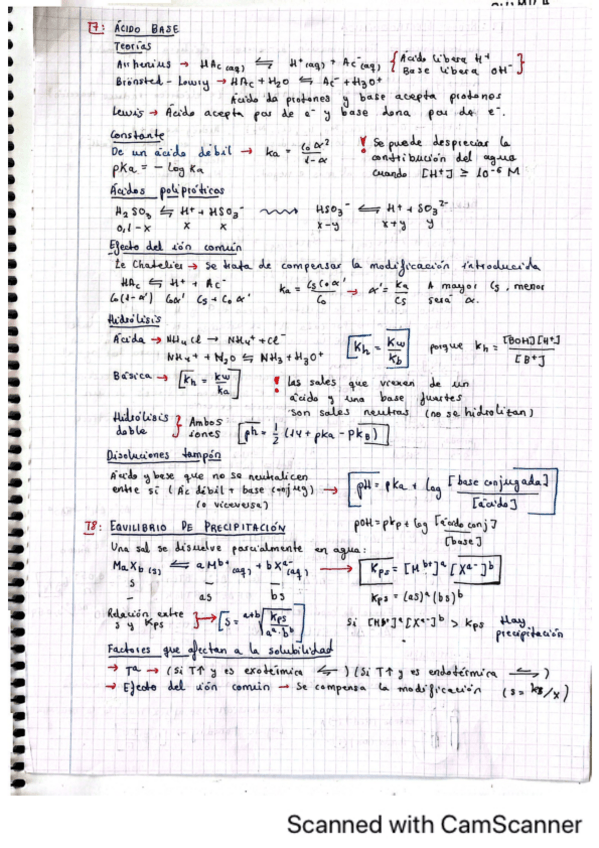 T7: ÁCIDO BASE
Teorías
Arrhenius → HAc (aq) ⇆ H⁺(aq) + Ac⁻(aq) { Ácido libera H⁺
Base libera OH⁻ }
Brönsted - Lowry → HAc + H2O ⇆ Ac⁻ + H3O⁺
Ácido da protones y base acepta protones
Lewis → Ácido acepta par de e⁻ y base dona par de e⁻.
Constante
De un ácido débil → Ka = C₀α² / 1-α
pKa = - log Ka
! Se puede despreciar la
contribución del agua
cuando [H⁺] ≥ 10⁻⁶ M
Ácidos polipróticos
H2SO3 ⇆ H⁺ + HSO3⁻ HSO3⁻ ⇆ H⁺ + SO3²⁻
0,1-x x x x-y x+y y
Efecto del ión común
Le Chatelier → Se trata de compensar la modificación introducida
HAc ⇆ H⁺ + Ac⁻
C₀(1-α') C₀α' Cs + C₀α'
Ka = CsC₀α' / C₀ → α' = Ka / Cs
A mayor Cs, menor
será α.
Hidrólisis
Ácida → NH4Cl → NH4⁺ + Cl⁻
NH4⁺ + H2O ⇆ NH3 + H3O⁺
[Kh = Kw / Kb] porque Kh = [BOH][H⁺] / [B⁺]
Básica → [Kh = Kw / Ka]
! Las sales que vienen de un
ácido y una base fuertes
son sales neutras (no se hidrolizan)
Hidrólisis
doble } Ambos
iones [ph = 1/2 (14 + pka - pKB)]
Disoluciones tampón
Ácido y base que no se neutralicen
entre sí (Ac débil + base conjug) →
(o viceversa)
[pH = pKa + log [base conjugada] / [ácido]]
pOH = pKb + log [ácido conj] / [base]
T8: EQUILIBRIO DE PRECIPITACIÓN
Una sal se disuelve parcialmente en agua:
MaXb (s) ⇆ aMᵇ⁺ (aq) + bXᵃ⁻ (aq) → [Kps = [Mᵇ⁺]ᵃ [Xᵃ⁻]ᵇ]
s — —
— as bs Kps = (as)ᵃ (bs)ᵇ
Relación entre
s y Kps } → [s = ᵃ⁺ᵇ√(Kps / aᵃ·bᵇ)]
Si [Mᵇ⁺]ᵃ [Xᵃ⁻]ᵇ > Kps Hay
precipitación
Factores que afectan a la solubilidad
→ Tª → (Si T↑ y es exotérmica ⇆) (Si T↑ y es endotérmica ⇆)
→ Efecto del ión común → Se compensa la modificación (s = ks/x)
Scanned with CamScanner